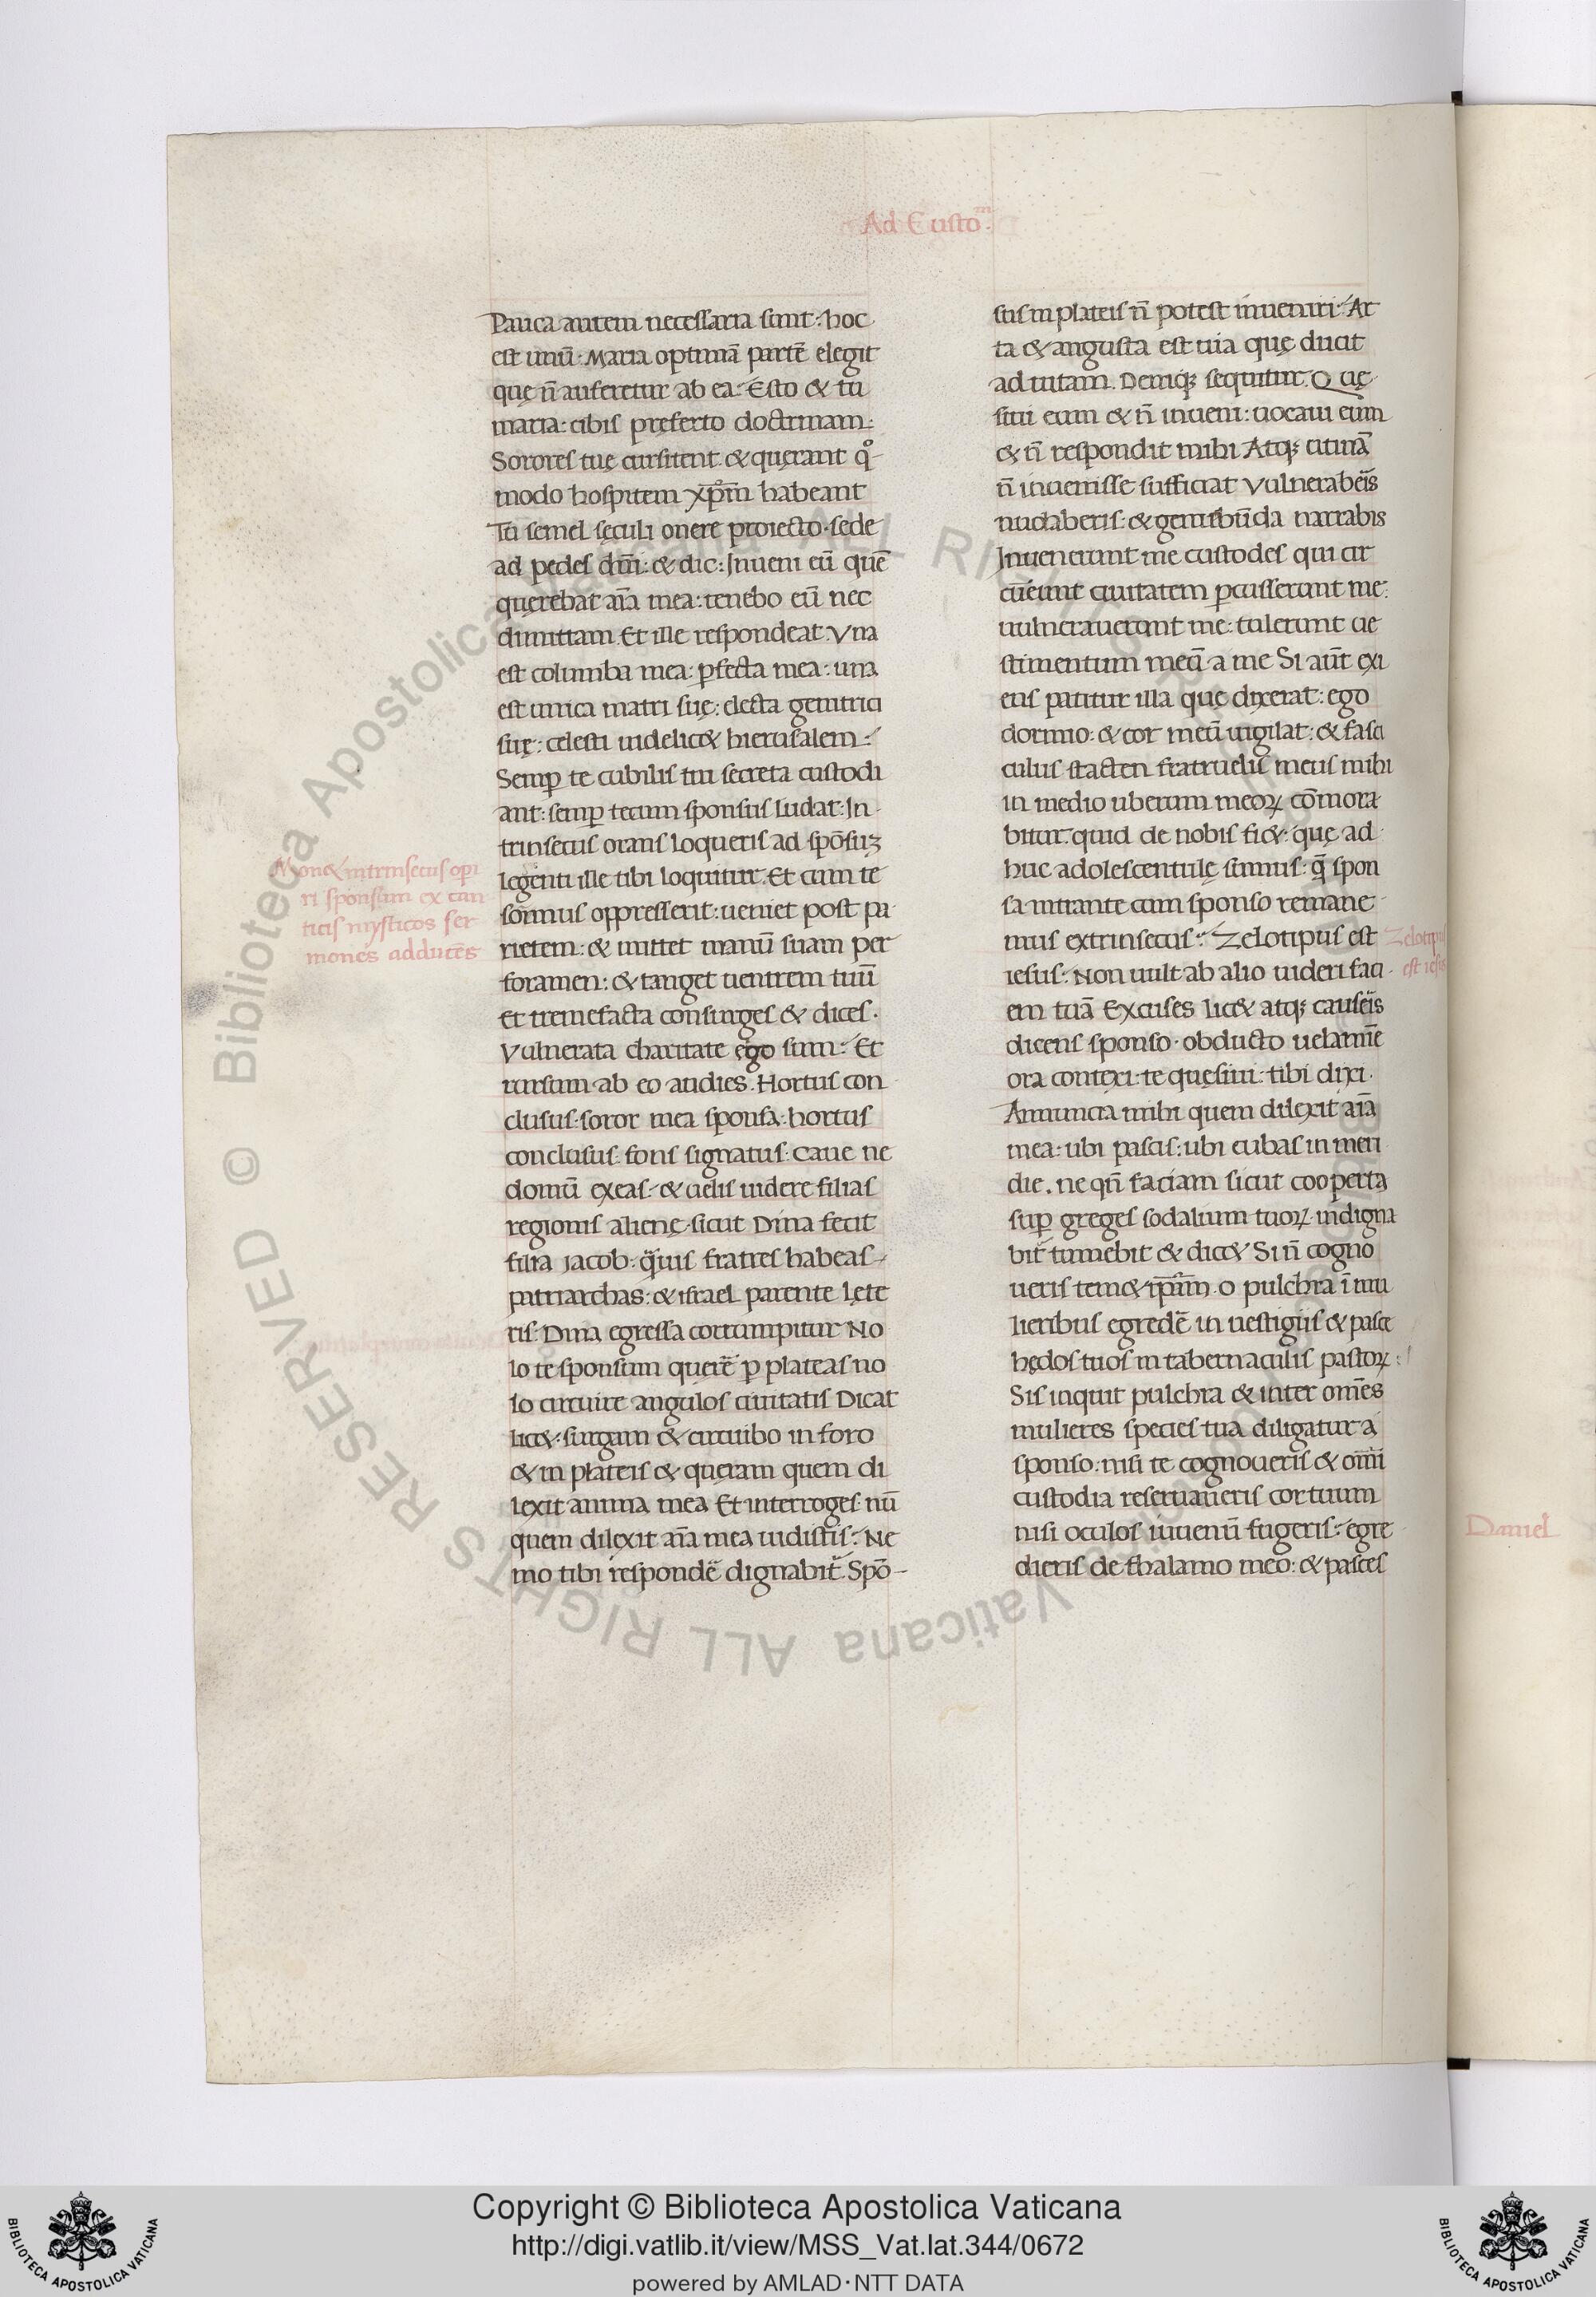 Ad Eustoᵐ.
Pauca autem necessaria sunt: hoc
est unū. Maria optimā partē elegit
quę n̄ auferetur ab ea. Esto & tu
maria: cibis pręferto doctrinam.
Sorores tuę cursitent. & quęrant qͦ-
modo hospitem xp̄m habeant
Tu semel sęculi onere proiecto. sede
ad pedes dn̄i: & dic: Inveni eū quē
quęrebat aīa mea: tenebo eū nec
dimittam Et ille respondeat. Vna
est columba mea: ꝑfecta mea: una
est unica matri suę: electa genitrici
suę: celesti uidelic& hierusalem.
Semꝑ te cubilis tui secreta custodi
ant: semꝑ tecum sponsus ludat. In-
trinsecus orans loqueris ad spōsuꝫ
legenti ille tibi loquitur. Et cum te
somnus oppresserit: ueniet post pa-
rietem: & mittet manū suam per
foramen: & tanget uentrem tuū
Et tremefacta consurges & dices.
Vulnerata charitate ego sum. Et
rursum ab eo audies. Hortus con
clusus. soror mea sponsa. hortus
conclusus. fons signatus. Caue ne
domū exeas. & uelis uidere filias
regionis alienę. sicut Dina fecit
filia Jacob. q̄uis fratres habeas
patriarchas: & israel parente lęte
ris: Dina egressa corrumpitur No
lo te sponsum querē ꝑ plateas no
lo circuire angulos ciuitatis Dicat
lic&. surgam & circuibo in foro
& in plateis & quęram quem di
lexit anima mea Et interroges. nū
quem dilexit aīa mea uidistis: Ne
mo tibi respondē dignabit̄. Spō-
Mon& intrinsecus opi
ri sponsum ex can
ticis mysticos ser
mones adducēs
sus in plateis n̄ potest inueniri. Ar
ta & angusta est uia quę ducit
ad uitam. Deniqꝫ sequitur. Quę
siui eum & n̄ inueni: uocaui eum
& n̄ respondit mihi Atqꝫ utinā
n̄ inuenisse sufficiat Vulneraberis
nudaberis: & gemebūda narrabis
Inuenerunt me custodes qui cir
cūeunt ciuitatem ꝑcusserunt me:
uulnerauerunt me: tulerunt ue
stimentum meū a me Si aūt exi
ens patitur illa quę dixerat: ego
dormio: & cor meū uigilat: & fasci
culus stacten fratruelis meus mihi
in medio uberum meoꝝ cōmora
bitur. quid de nobis fi&. quę ad
huc adolescentulę sumus: q̄ spon
sa intrante cum sponso remane
mus extrinsecus. Zelotipus est
iesus. Non uult ab alio uideri faci
em tuā Excuses lic& atqꝫ causeris
dicens sponso. obducto uelamīe
ora contexi: te quęsiui: tibi dixi.
Annuncia mihi quem dilexit aīa
mea: ubi pascis: ubi cubas in meri
die. ne qn̄ faciam sicut cooperta
suꝑ greges sodalium tuoꝝ. indigna
bit̄ tumebit & dic& Si n̄ cogno
ueris tem& ip̄am. o pulchra ī mu
lieribus egredē in uestigiis & pasce
hędos tuos in tabernaculis pastoꝝ:
Sis inquit pulchra & inter om̄es
mulieres species tua diligatur a
sponso. nisi te cognoueris & om̄i
custodia reseruaueris cor tuum
nisi oculos iuuenū fugeris. egre
dieris de thalamo meo: & pasces
Zelotipus
est iesus
Daniel
© Biblioteca Apostolica Vaticana ALL RIGHTS RESERVED
Copyright © Biblioteca Apostolica Vaticana
http://digi.vatlib.it/view/MSS_Vat.lat.344/0672
powered by AMLAD·NTT DATA
BIBLIOTECA APOSTOLICA VATICANA
BIBLIOTECA APOSTOLICA VATICANA